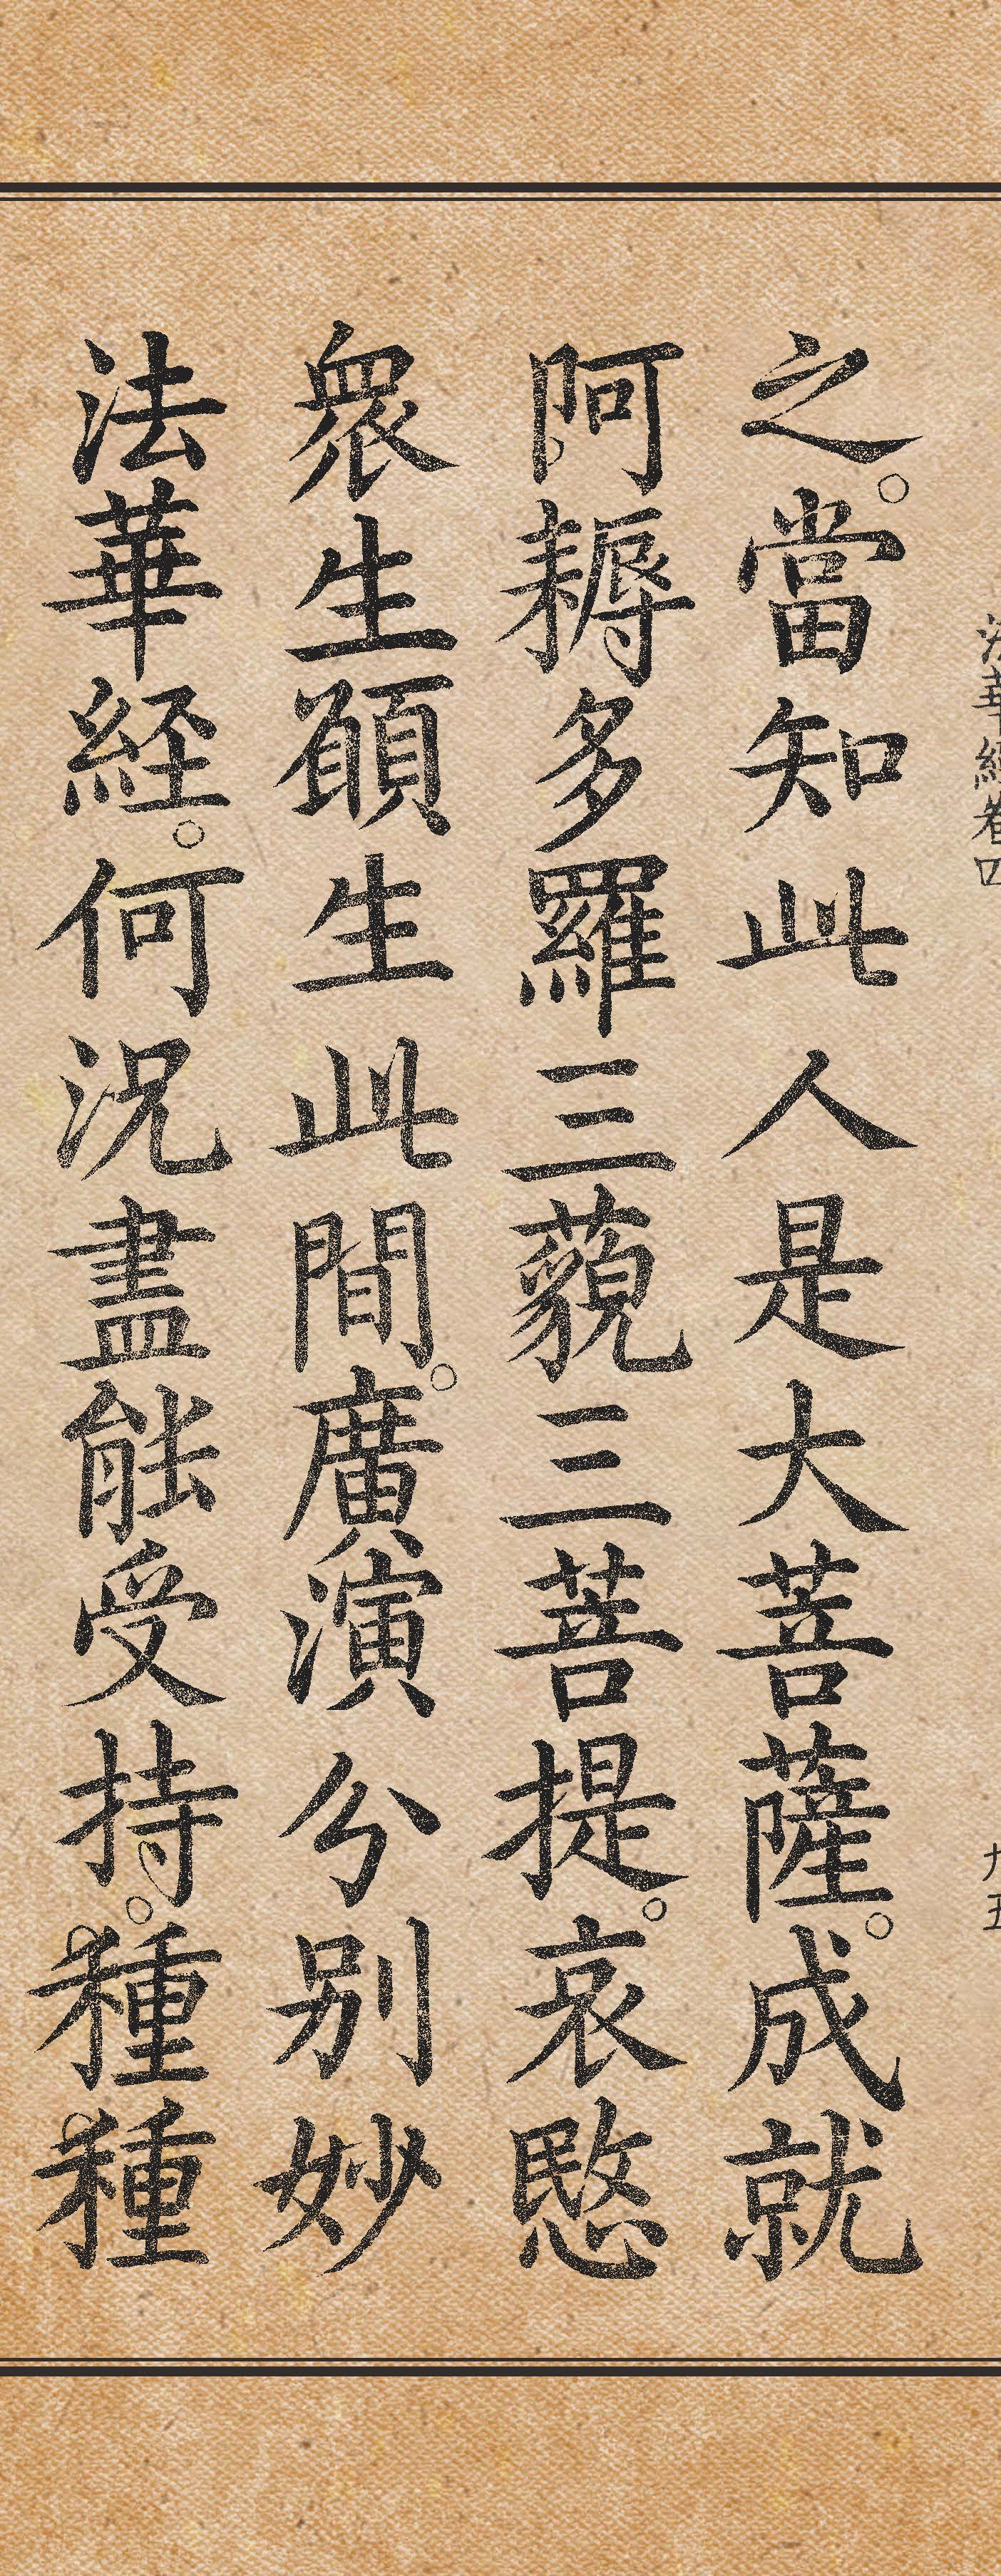 法華經卷四
九五
之。當知此人是大菩薩。成就
阿耨多羅三藐三菩提。哀愍
衆生願生此間。廣演分別妙
法華経。何況盡能受持。種種